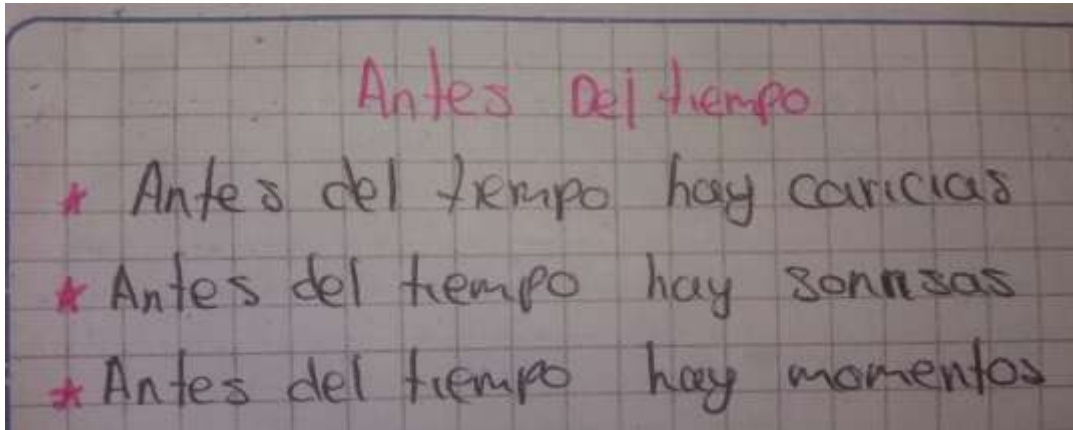 Antes Del tiempo
* Antes del tiempo hay caricias
* Antes del tiempo hay sonrisas
* Antes del tiempo hay momentos